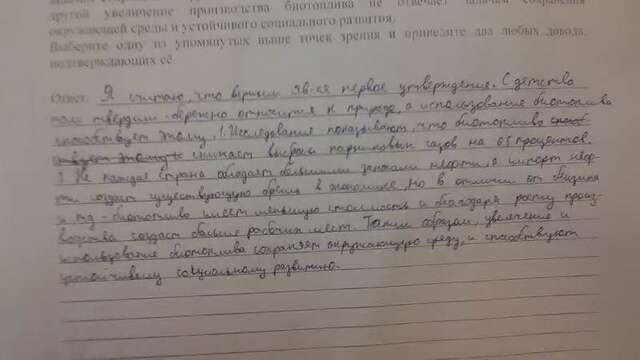 другой увеличение производства биотоплива не отвечает задачам сохранения
окружающей среды и устойчивого социального развития.
Выберите одну из упомянутых выше точек зрения и приведите два любых довода,
подтверждающих её
Ответ: Я считаю, что верным яв-ся первое утверждение. С детства
нам твердили - бережно относится к природе, а использование биотоплива
способствует этому. 1. Исследования показывают, что биотопливо
снижает выбросы парниковых газов на 65 процентов.
Не каждая страна обладает большими запасами нефти, а импорт неф-
ти создает существующую в экономике. Но в отличии от бензина
и т.д - биотопливо имеет меньшую стоимость и благодаря росту произ-
водства создаст больше рабочих мест. Таким образом, увеличение и
использование биотоплива сохраняет окружающую среду, и способствуют
устойчивому социальному развитию.